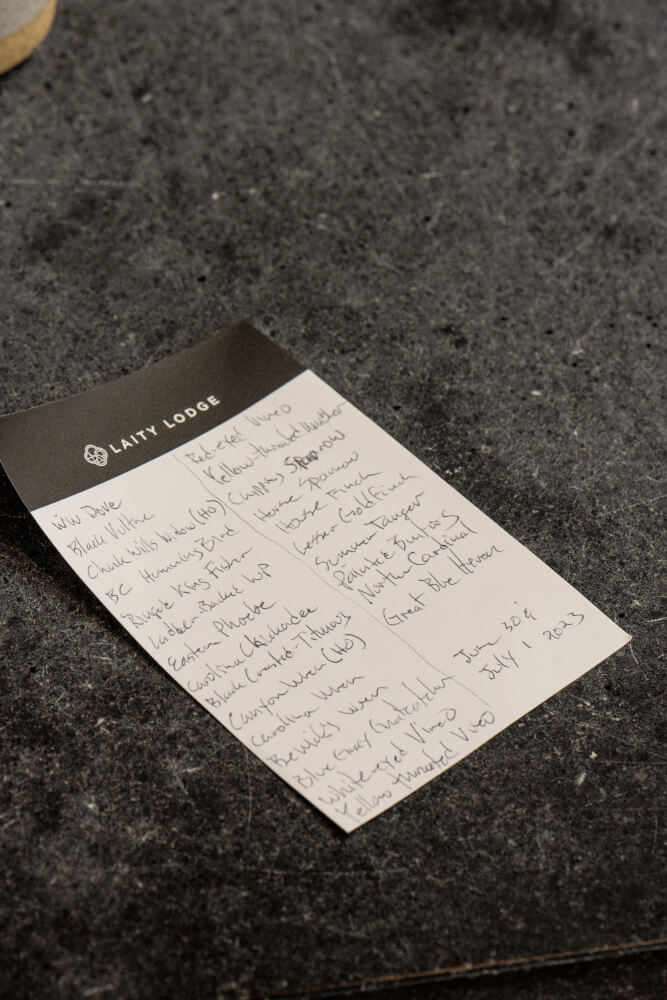 LAITY LODGE
WW Dove
Black Vulture
Chuck Wills Widow (HO)
BC Humming Bird
Ringed King Fisher
Ladder-Backed WP
Eastern Phoebe
Carolina Chickadee
Black Crested-Titmous
Canyon Wren (HO)
Carolina Wren
Bewicks Wren
Blue Gray Gnatcatcher
White-eyed Vireo
Yellow throated Vireo
Red-eyed Vireo
Yellow-throated Warbler
Chipping Sparrow
House Sparrow
House Finch
Lesser Goldfinch
Summer Tanager
Painted Buntings
Northern Cardinal
Great Blue Heron
June 30 &
July 1 2023